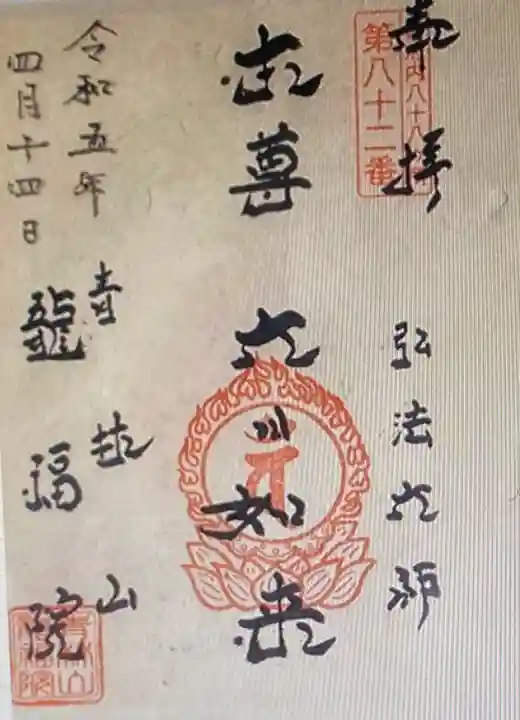 奉拝
内八十八
第八十二番
弘法大師
本尊 大日如来
令和五年
四月十四日
青林山
龍福院